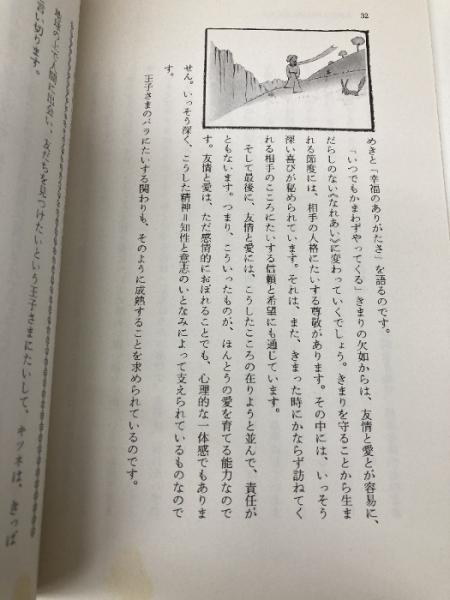 32
めきと「幸福のありがたさ」を語るのです。
「いつでもかまわずやってくる」きまりの欠如からは、友情と愛とが容易に、
だらしのない《なれあい》に変わっていくでしょう。きまりを守ることから生ま
れる節度には、相手の人格にたいする尊敬があります。その中には、いっそう
深い喜びが秘められています。それは、また、きまった時にかならず訪ねてく
れる相手のこころにたいする信頼と希望にも通じています。
そして最後に、友情と愛には、こうしたこころの在りようと並んで、責任が
ともないます。つまり、こういったものが、ほんとうの愛を育てる能力なので
す。友情と愛は、ただ感情的におぼれることでも、心理的な一体感でもありま
せん。いっそう深く、こうした精神=知性と意志のいとなみによって支えられているものなので
す。
王子さまのバラにたいする関わりも、そのように成熟することを求められているのです。
地球の上で人間に出会い、友だちを見つけたいという王子さまにたいして、キツネは、きっぱ
言い切ります。